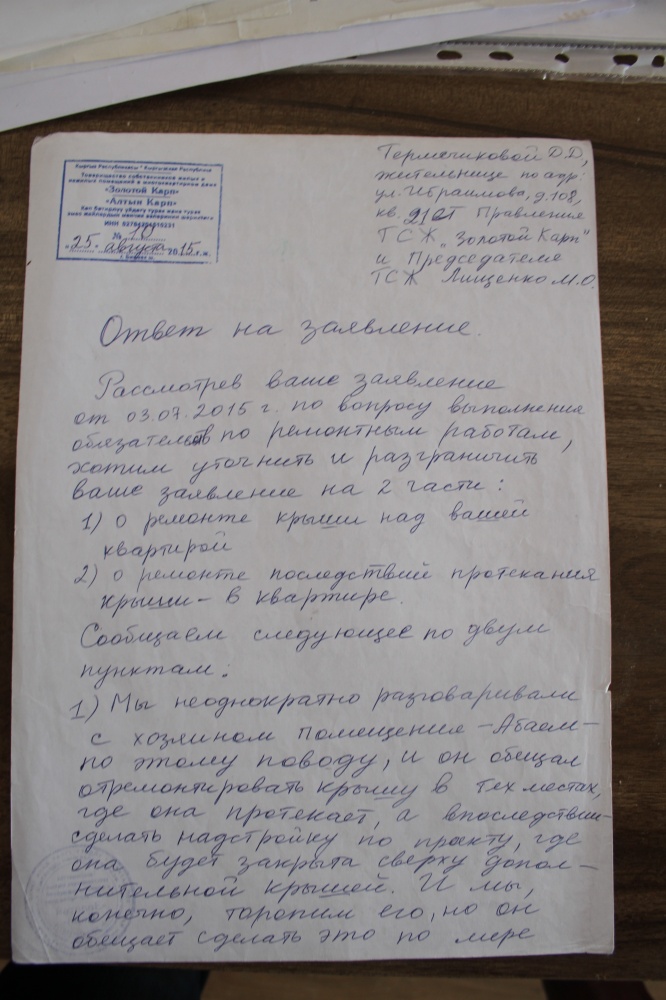 Кыргыз Республикасы * Кыргызская Республика
Товарищество собственников жилых и
нежилых помещений в многоквартирном доме
«Золотой Карп»
«Алтын Карп»
Көп батирлүү үйдөгү турак жана турак
эмес жайлардын менчик ээлеринин шериктиги
ИНН
№ 10
"25" августа 2015 г.ж.
Термечиковой Д.Д,
жительнице по адр:
ул. Ибраимова, д.108,
кв. 21 от Правления
ТСЖ „Золотой Карп"
и Председателя
ТСЖ Лищенко М.О.
Ответ на заявление.
Рассмотрев ваше заявление
от 03.07.2015 г. по вопросу выполнения
обязательств по ремонтным работам,
хотим уточнить и разграничить
ваше заявление на 2 части:
1) о ремонте крыши над вашей
квартирой
2) о ремонте последствий протекания
крыши – в квартире.
Сообщаем следующее по двум
пунктам:
1) Мы неоднократно разговаривали
с хозяином помещения – Абаем –
по этому поводу, и он обещал
отремонтировать крышу в тех местах,
где она протекает, а впоследствии –
сделать надстройку по проекту, где
она будет закрыта сверху допол-
нительной крышей. И мы,
конечно, торопим его, но он
обещает сделать это по мере